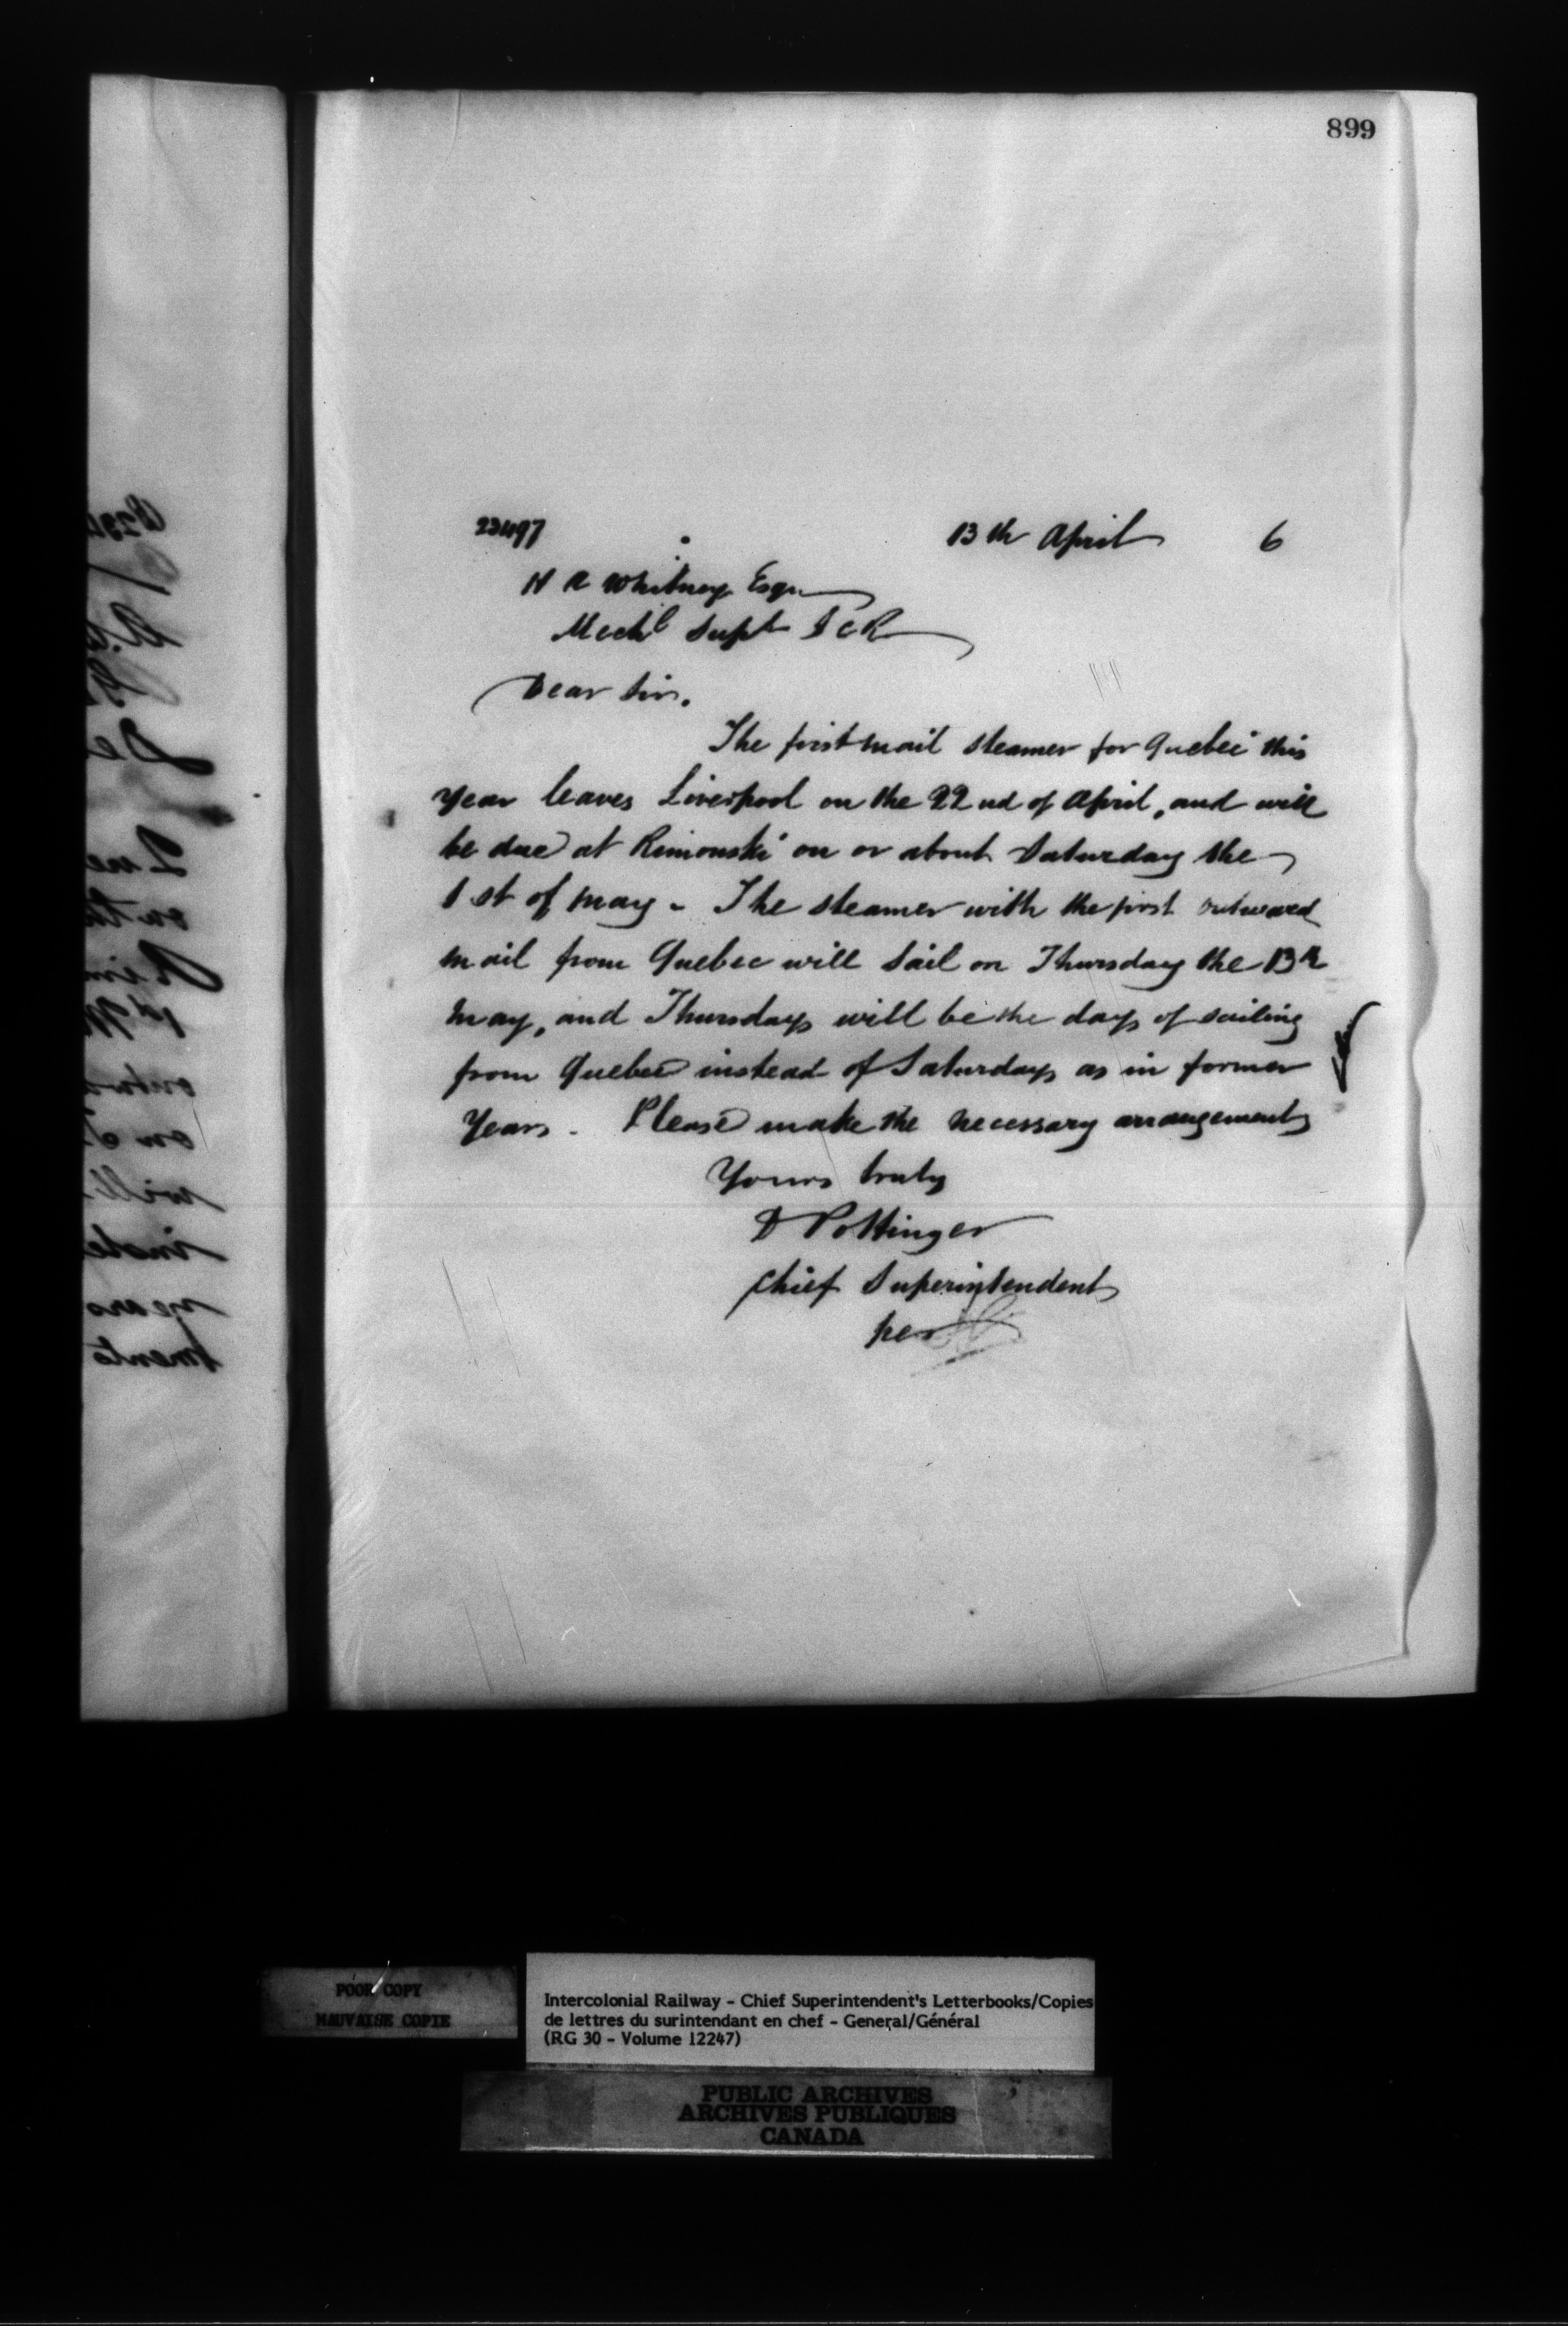 899
23497
13th April 6
H A Whitney Esqr
Mechl Supt I C R
Dear Sir.
The first mail steamer for Quebec this
year leaves Liverpool on the 22nd of April, and will
be due at Rimouski on or about Saturday the
1st of May - The steamer with the first outward
mail from Quebec will sail on Thursday the 13th
May, and Thursdays will be the days of sailing
from Quebec instead of Saturdays as in former
Years. Please make the necessary arrangements
Yours truly
D Pottinger
Chief Superintendent
per
POOR COPY
MAUVAISE COPIE
Intercolonial Railway - Chief Superintendent's Letterbooks/Copies
de lettres du surintendant en chef - General/Général
(RG 30 - Volume 12247)
PUBLIC ARCHIVES
ARCHIVES PUBLIQUES
CANADA